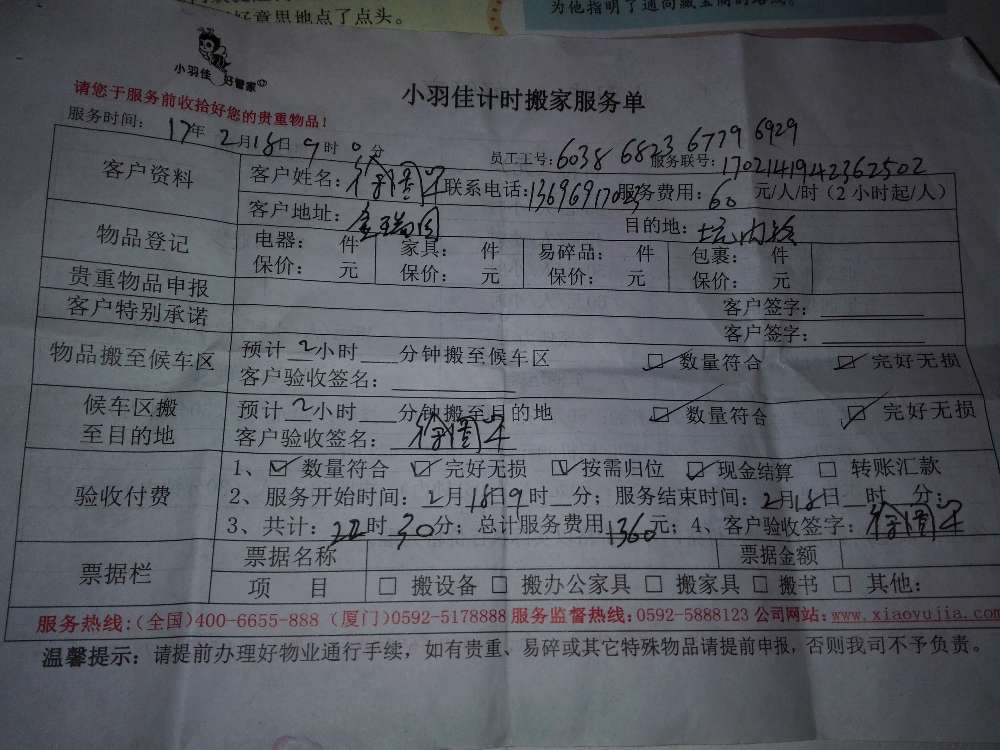 好意思地点了点头。
为他指明了通向
小羽佳 好管家
小羽佳计时搬家服务单
请您于服务前收拾好您的贵重物品！
服务时间： 17年2月18日9时0分 员工工号：6038 6823 6779 6929
服务联号：17021419142362502
客户资料 客户姓名： 联系电话： 服务费用：60元/人/时（2小时起/人）
客户地址： 目的地：
物品登记 电器： 件 家具： 件 易碎品： 件 包裹： 件
保价： 元 保价： 元 保价： 元 保价： 元
贵重物品申报 客户签字：
客户特别承诺 客户签字：
物品搬至候车区 预计2小时 分钟搬至候车区 ☑ 数量符合 ☑ 完好无损
客户验收签名：
候车区搬至目的地 预计2小时 分钟搬至目的地 ☑ 数量符合 ☑ 完好无损
客户验收签名：
验收付费 1、☑ 数量符合 ☑ 完好无损 ☑ 按需归位 ☑ 现金结算 □ 转账汇款
2、服务开始时间：2月18日9时 分；服务结束时间：2月18日 时 分；
3、共计：22时30分；总计服务费用1360元；4、客户验收签字：
票据栏 票据名称 票据金额
项 目 □ 搬设备 □ 搬办公家具 □ 搬家具 □ 搬书 □ 其他：
服务热线：(全国)400-6655-888 (厦门)0592-5178888 服务监督热线：0592-5888123 公司网站：www.xiaoyujia.com
温馨提示：请提前办理好物业通行手续，如有贵重、易碎或其它特殊物品请提前申报，否则我司不予负责。